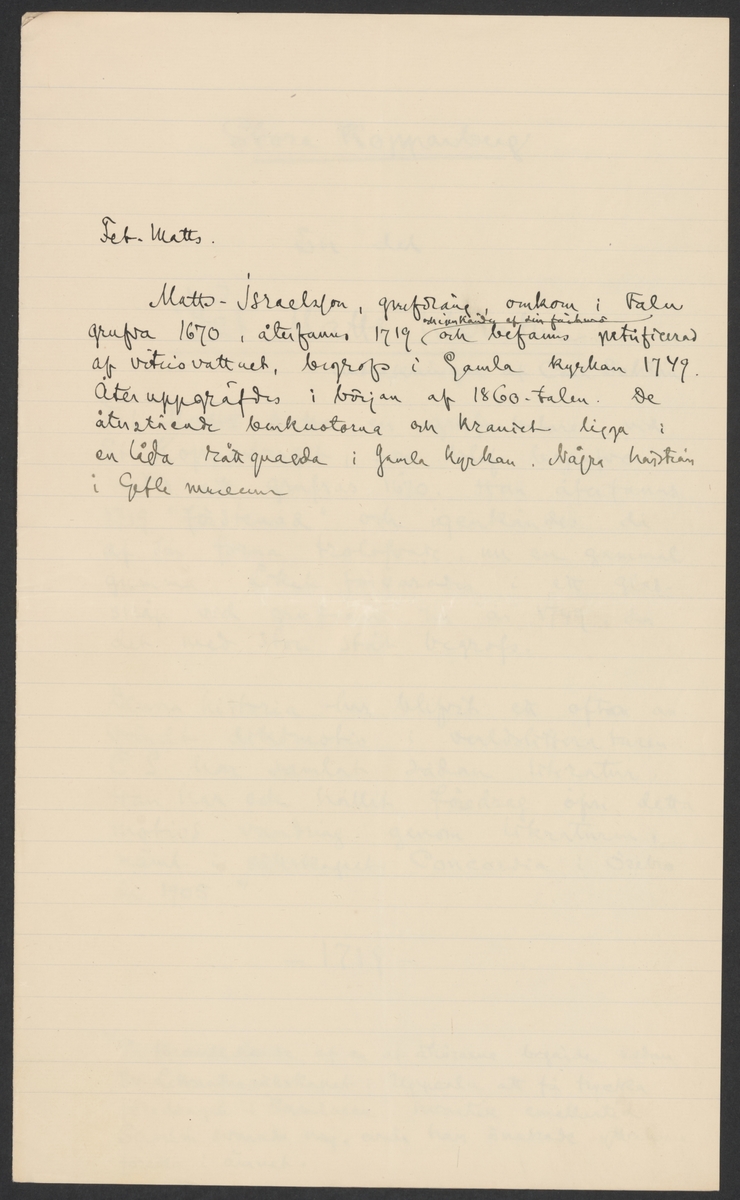 Fet-Matts.
Matts-Israelsson, grufdräng, omkom i Falu
och igenkändes af sin fästmö
grufva 1670, återfanns 1719 och befanns petrificerad
af vitriolsvattnet, begrofs i Gamla kyrkan 1749.
Åter uppgräfdes i början af 1860-talen. De
återstående benknotorna och kraniet ligga i
en låda i Gamla Kyrkan. Några
i Gefle museum